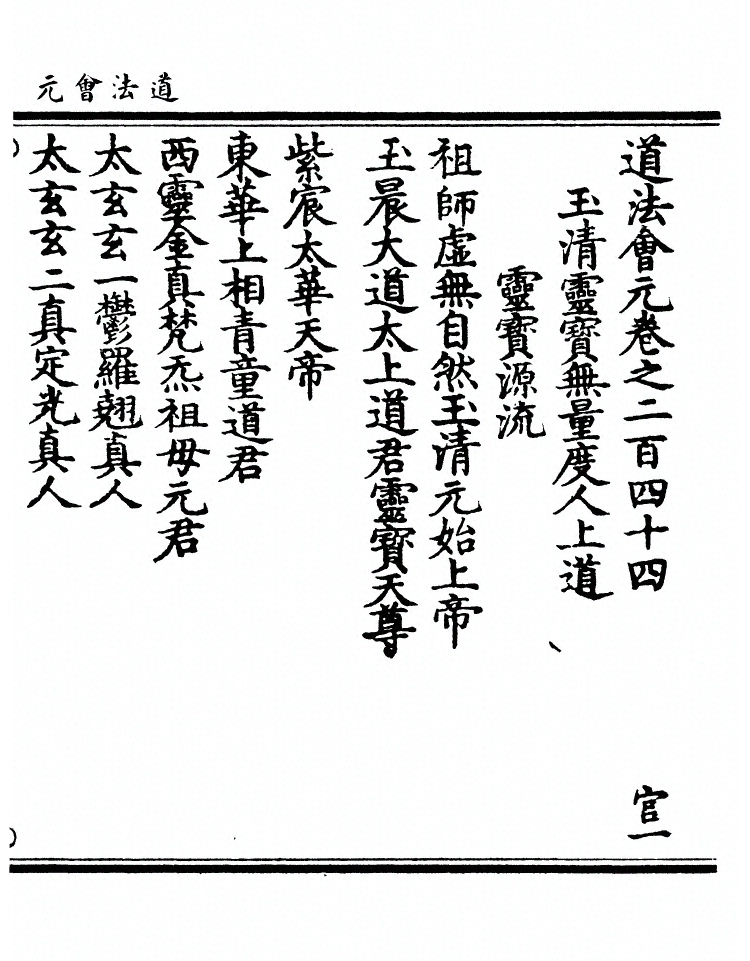 道法會元
道法會元卷之二百四十四 官一
玉清靈寶無量度人上道
靈寶源流
祖師虛無自然玉清元始上帝
玉晨大道太上道君靈寶天尊
紫宸太華天帝
東華上相青童道君
西靈金真梵炁祖母元君
太玄玄一鬱羅翹真人
太玄玄二真定光真人